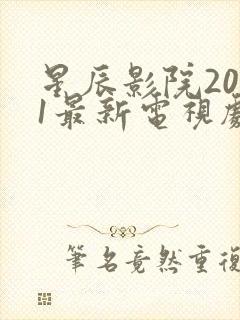 星辰影院20
1最新電視劇
筆名竟然重復